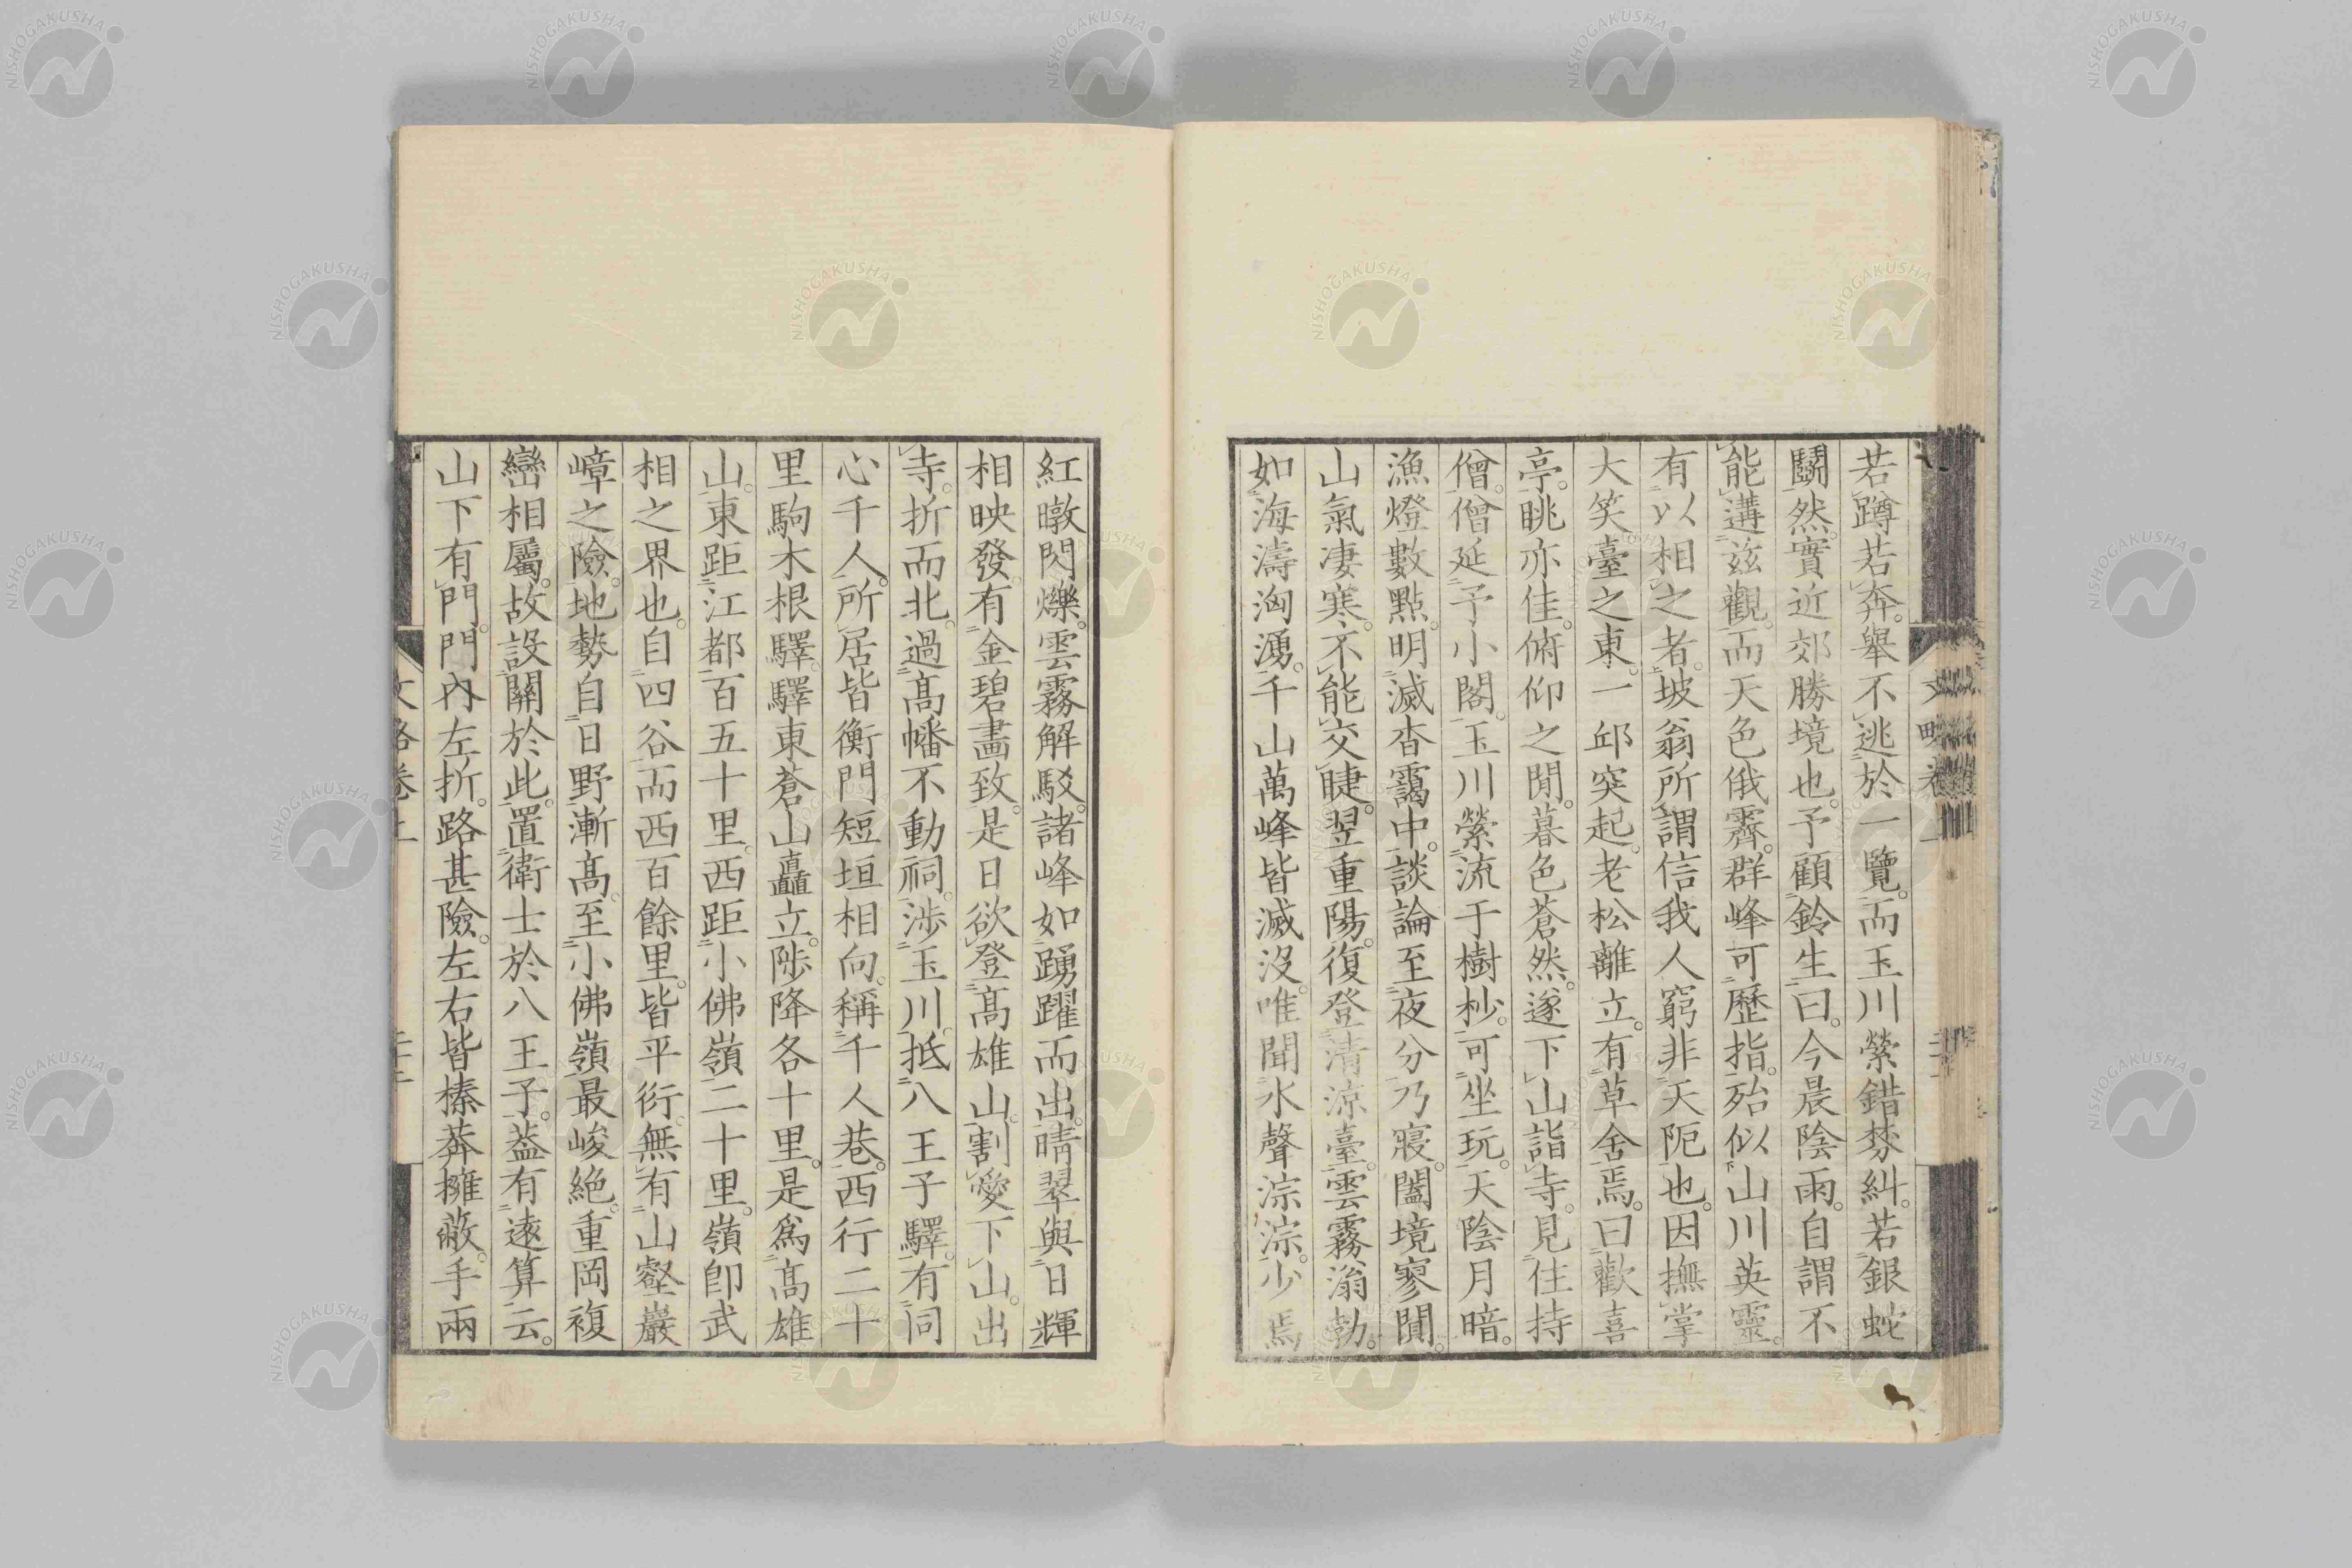 若蹲若奔。舉不逃於一覽。而玉川縈錯棼糾。若銀蛇
鬭然。實近郊勝境也。予顧鈴生曰。今晨陰雨。自謂不
能遘茲觀。而天色俄霽。群峰可歷指。殆似山川英靈。
有以相之者。坡翁所謂信我人窮非天阨也。因撫掌
大笑臺之東。一邱突起。老松離立。有草舍焉。曰歡喜
亭。眺亦佳。俯仰之閒。暮色蒼然。遂下山詣寺。見住持
僧。僧延予小閣。玉川縈流于樹杪。可坐玩。天陰月暗。
漁燈數點。明滅杳靄中。談論至夜分乃寢。闔境寥闃。
山氣凄寒。不能交睫。翌重陽。復登清涼臺。雲霧滃勃。
如海濤洶湧。千山萬峰皆滅沒。唯聞水聲淙淙。少焉
紅暾閃爍。雲霧解駁。諸峰如踴躍而出。晴翠與日輝
相映發。有金碧畫致。是日欲登高雄山。割愛下山。出
寺。折而北。過高幡不動祠。涉玉川。抵八王子驛。有同
心千人。所居皆衡門短垣相向。稱千人巷。西行二十
里駒木根驛。驛東蒼山矗立。陟降各十里。是爲高雄
山。東距江都百五十里。西距小佛嶺二十里。嶺卽武
相之界也。自四谷而西百餘里。皆平衍。無有山壑巖
嶂之險。地勢自日野漸高。至小佛嶺最峻絕。重岡複
巒相屬。故設關於此。置衛士於八王子。葢有遠算云。
山下有門。門內左折。路甚險。左右皆榛莽擁蔽。手兩
文略卷上
NISHOGAKUSHA